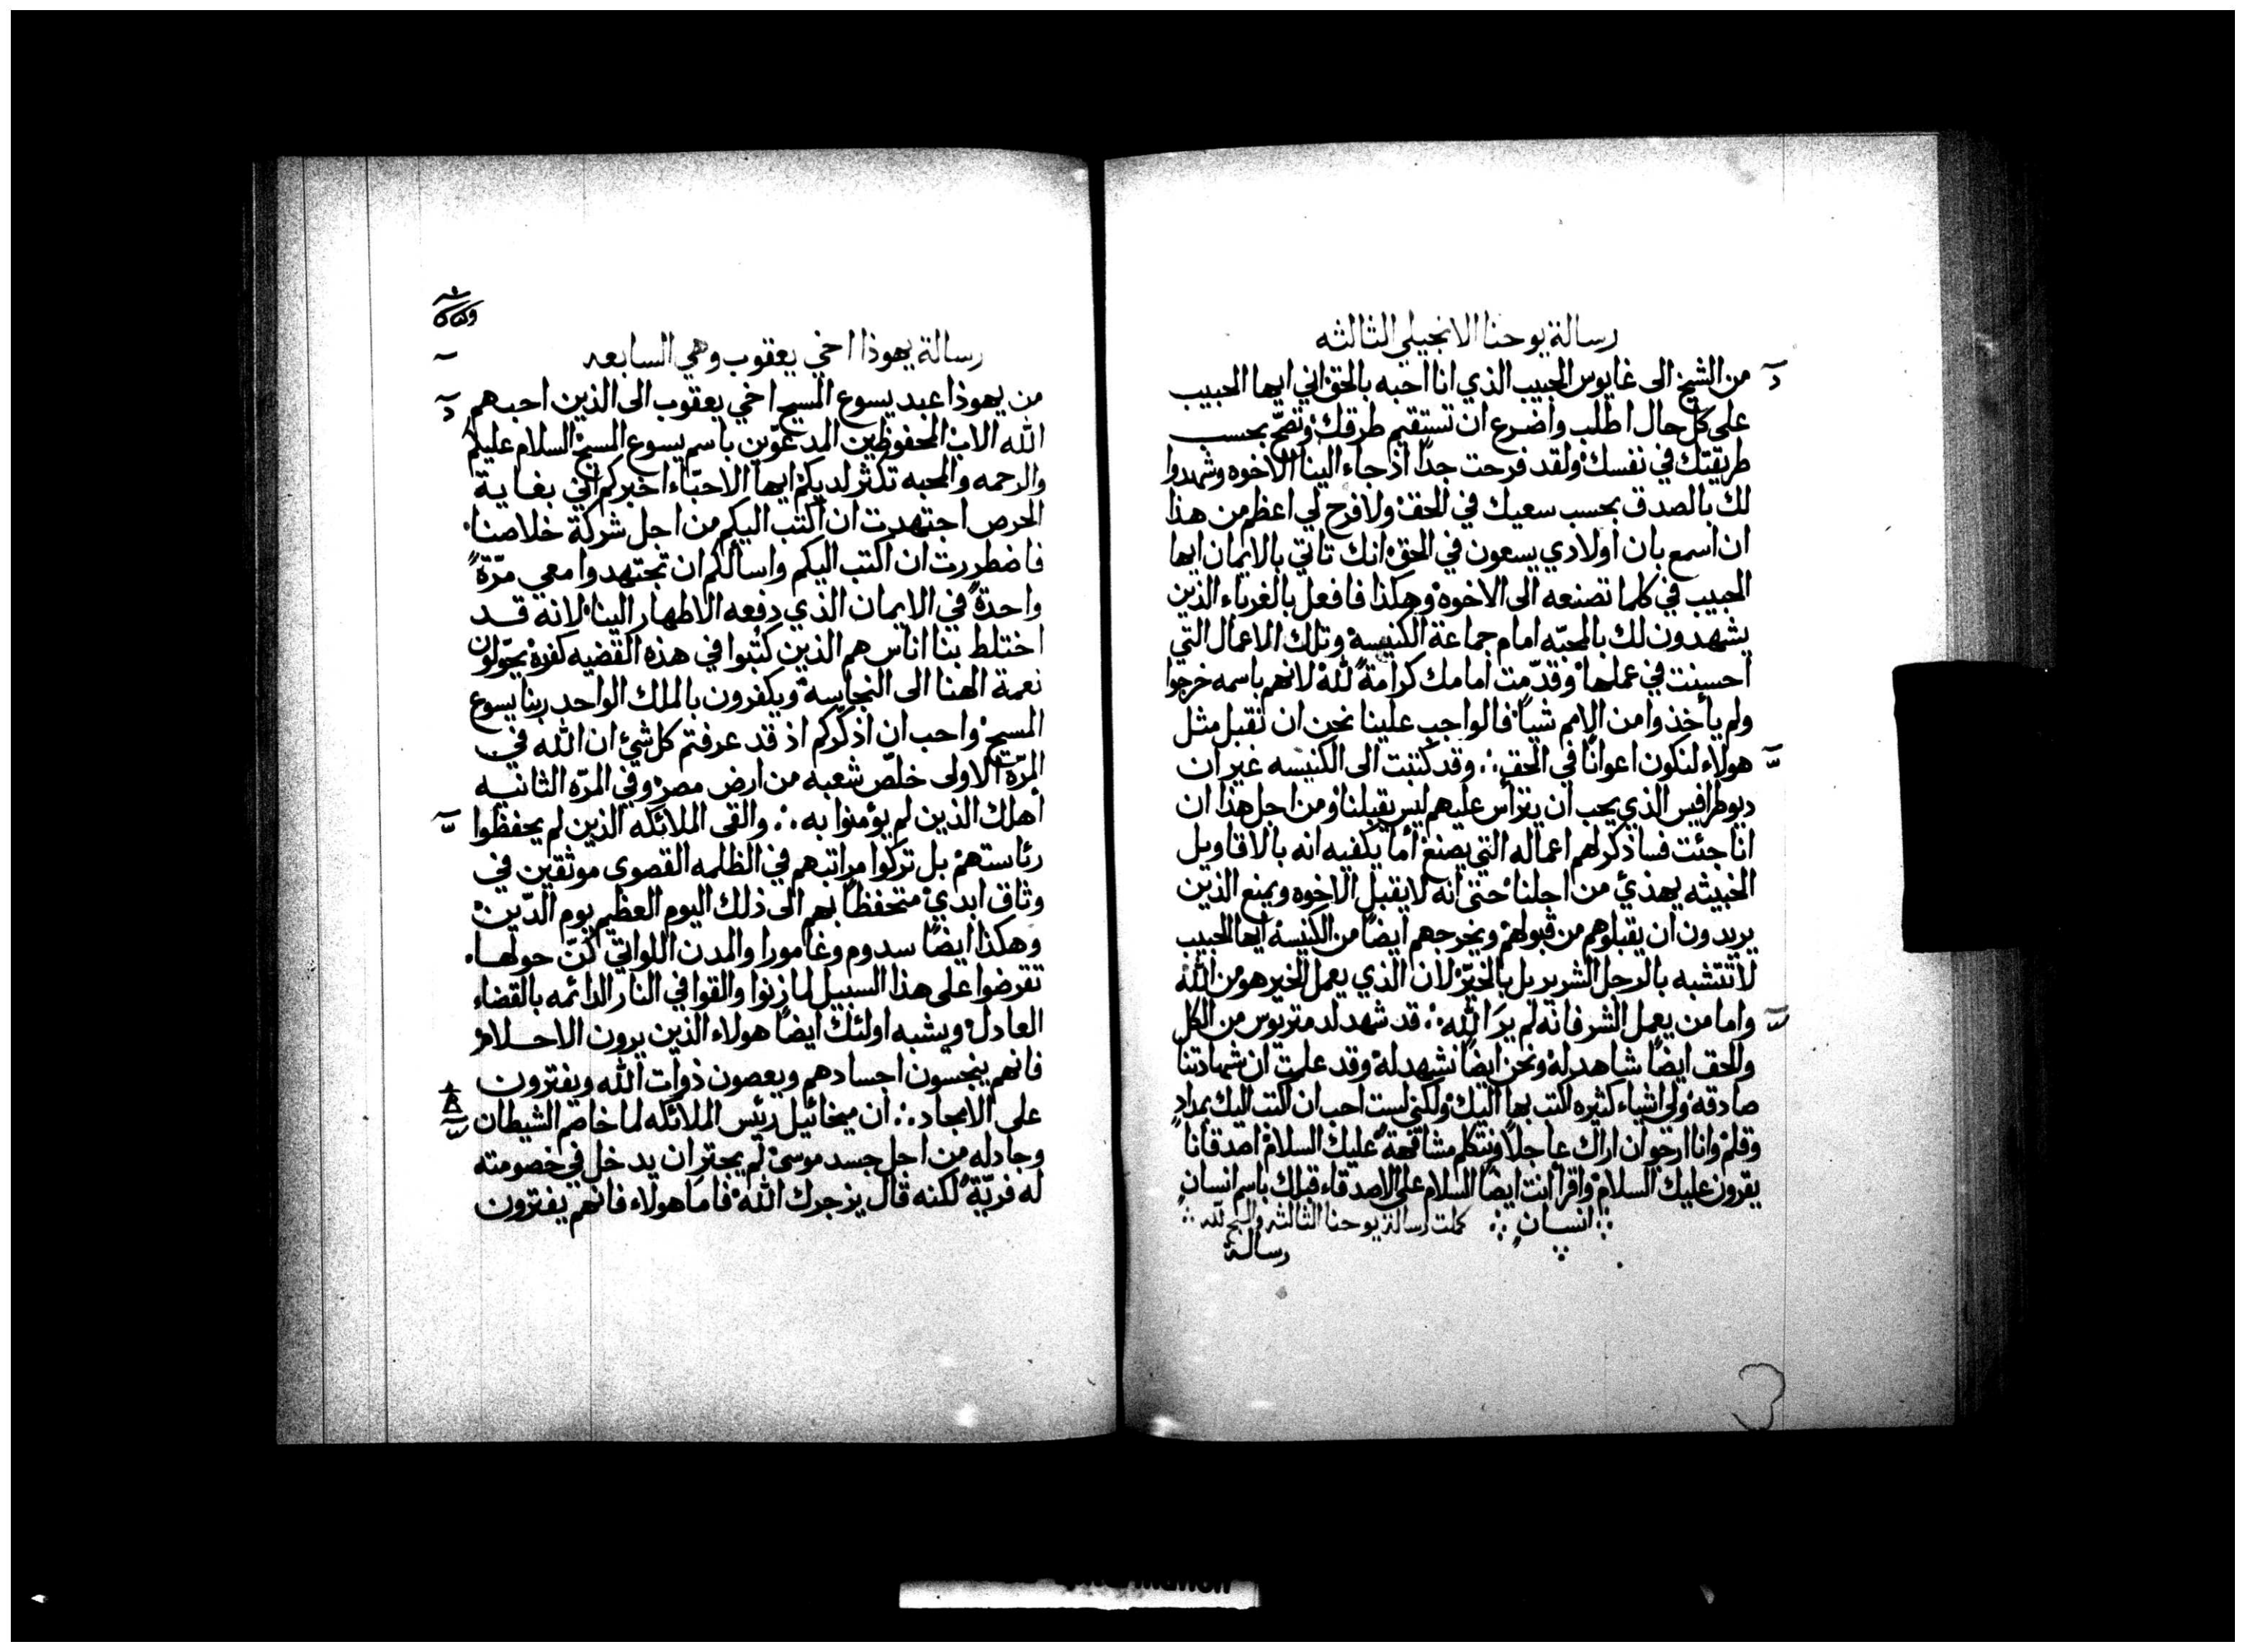 رسالة يوحنا الانجيلي الثالثه
من الشيخ الى غايوس الحبيب الذي انا احبه بالحق اني ايها الحبيب
على كل حال اطلب واضرع ان تستقيم طرقك وتصحّ بحسب
طريقتك في نفسك ولقد فرحت جدًا اذ جاء الينا الاخوه وشهدوا
لك بالصدق بحسب سعيك في الحق ولا فرح لي اعظم من هذا
ان اسمع بان اولادي يسعون في الحق انك تاتي بالايمان ايها
الحبيب في كلما تصنعه الى الاخوه وهكذا فافعل بالغرباء الذين
يشهدون لك بالمحبّه امام جماعة الكنيسه وتلك الاعمال التي
احسنت في عملها وقدّمت امامك كرامةً لله لانهم باسمه خرجوا
ولم يأخذوا من الامم شياً فالواجب علينا نحن ان نقبل مثل
هولاء لنكون اعوانًا في الحق ∴ وقد كتبت الى الكنيسه غير ان
ديوطرافيس الذي يحب ان يترأس عليهم ليس يقبلنا ومن اجل هذا ان
انا جئت فساذكر لهم اعماله التي يصنع أما يكفيه انه بالاقاويل
الخبيثه يهذئ من اجلنا حتى انه لا يقبل الاخوه ويمنع الذين
يريدون ان يقبلوهم من قبولهم ويخرجهم ايضًا من الكنيسه ايها الحبيب
لا تتشبه بالرجل الشرير بل بالخيّر لان الذي يعمل الخير هو من الله
واما من يعمل الشر فانه لم يرَ الله ∴ قد شهد لدمتريوس من الكل
والحق ايضًا شاهد له ونحن ايضًا نشهد له وقد علمت ان شهادتنا
صادقه ولي اشياء كثيره اكتب بها اليك ولكني لست احب ان اكتب اليك بمدادٍ
وقلم وانا ارجو ان اراك عاجلًا ونتكلم مشافهةً عليك السلام اصدقانا
يقرون عليك السلام واقرأ انت ايضًا السلام على الاصدقاء قبلك باسم انسانٍ
انسانٍ ∴ كملت رسالة يوحنا الثالثه والسبح لله
رسالة
رسالة يهوذا اخي يعقوب وهي السابعه
من يهوذا عبد يسوع المسيح اخي يعقوب الى الذين احبهم
الله الاب المحفوظين المدعوّين باسم يسوع المسيح السلام عليكم
والرحمه والمحبه تكثر لديكم ايها الاحبّاء اخبركم اني بغاية
الحرص اجتهدت ان اكتب اليكم من اجل شركة خلاصنا
فاضطررت ان اكتب اليكم واسألكم ان تجتهدوا معي مرّةً
واحدةً في الايمان الذي دفعه الاطهار الينا لانه قد
اختلط بنا اناس هم الذين كُتبوا في هذه القضيه كفره يحوّلون
نعمة الهنا الى النجاسه ويكفرون بالملك الواحد ربنا يسوع
المسيح واحب ان اذكّركم اذ قد عرفتم كل شئ ان الله في
المرّة الاولى خلّص شعبه من ارض مصر وفي المرّه الثانيه
اهلك الذين لم يؤمنوا به ∴ والقى الملائكه الذين لم يحفظوا
رئاستهم بل تركوا مراتبهم في الظلمه القصوى موثقين في
وثاق ابدي متحفظًا بهم الى ذلك اليوم العظيم يوم الدّين
وهكذا ايضًا سدوم وغامورا والمدن اللواتي كنّ حولها
تقرضوا على هذا السبيل لما زنوا والقوا في النار الدائمه بالقضاء
العادل ويشبه اولئك ايضًا هولاء الذين يرون الاحلام
فانهم ينجسون اجسادهم ويعصون ذوات الله ويفترون
على الامجاد ∴ ان ميخائيل رئيس الملائكه لما خاصم الشيطان
وجادله من اجل جسد موسى لم يجترِ ان يدخل في خصومته
له فريّةً لكنه قال يزجرك الله فاما هولاء فانهم يفترون